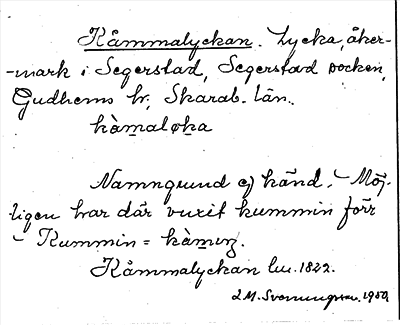 Kåmmalyckan. Lycka, åker-
-mark i Segerstad, Segerstad socken,
Gudhems hr, Skarab. län.
kàmaløka
Namngrund ej känd. - Möj-
ligen har där vuxit kummin förr
- Kummin = kàmɩŋ.
Kåmmalyckan lm. 1822.
L M. Svenungsson. 1950.